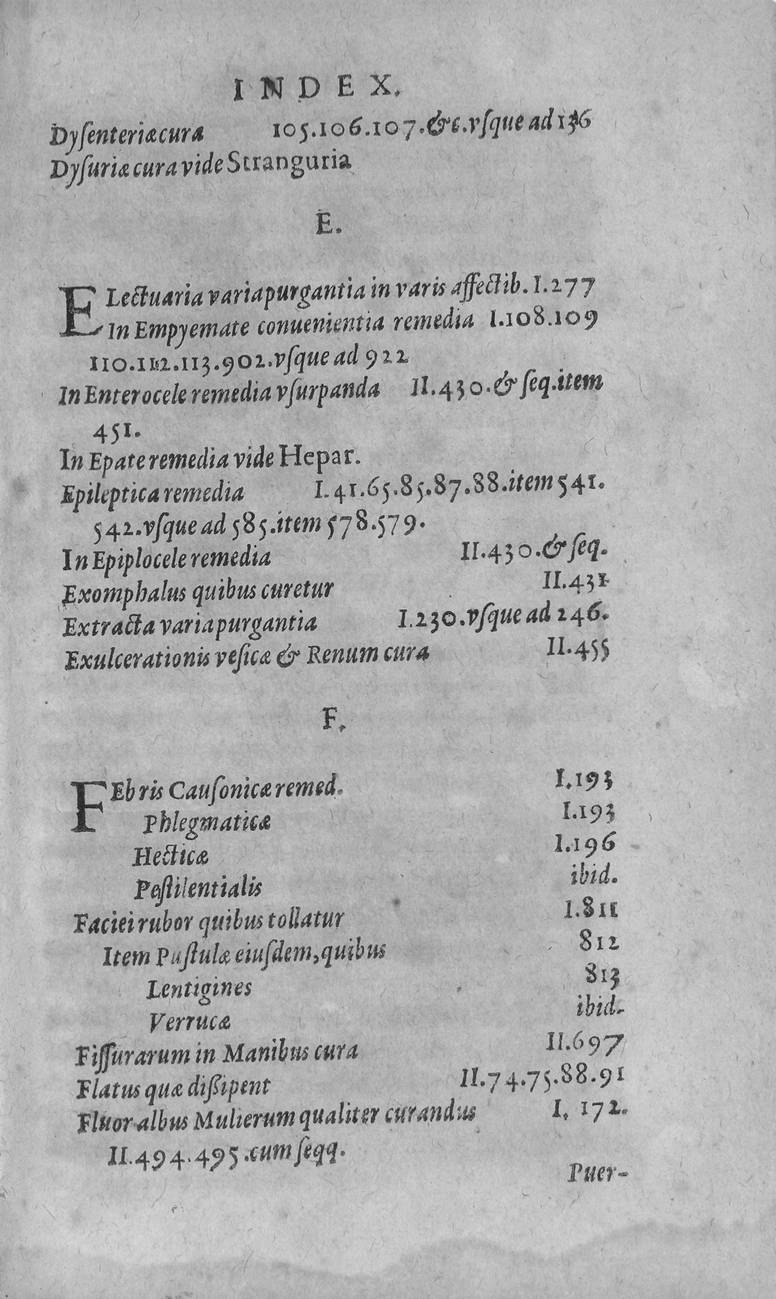 INDEX.
Dysenteriæ cura 105.106.107.&c.vsque ad 136
Dysuriæ cura vide Stranguria
E.
ELectuaria varia purgantia in varis affectib. I.277
In Empyemate conuenientia remedia I.108.109
110.112.113.902.vsque ad 922
In Enterocele remedia vsurpanda II.430.& seq.item
451.
In Epate remedia vide Hepar.
Epileptica remedia I.41.65.85.87.88.item 541.
542.vsque ad 585.item 578.579.
In Epiplocele remedia II.430.& seq.
Exomphalus quibus curetur II.431
Extracta varia purgantia I.230.vsque ad 246.
Exulcerationis vesicæ & Renum cura II.455
F.
FEbris Causonicæ remed. I.193
Phlegmaticæ I.193
Hecticæ I.196
Pestilentialis ibid.
Faciei rubor quibus tollatur I.811
Item Pustulæ eiusdem,quibus 812
Lentigines 813
Verrucæ ibid.
Fissurarum in Manibus cura II.697
Flatus quæ dißipent II.74.75.88.91
Fluor albus Mulierum qualiter curandus I. 172.
II.494.495.cum seqq.
Puer-